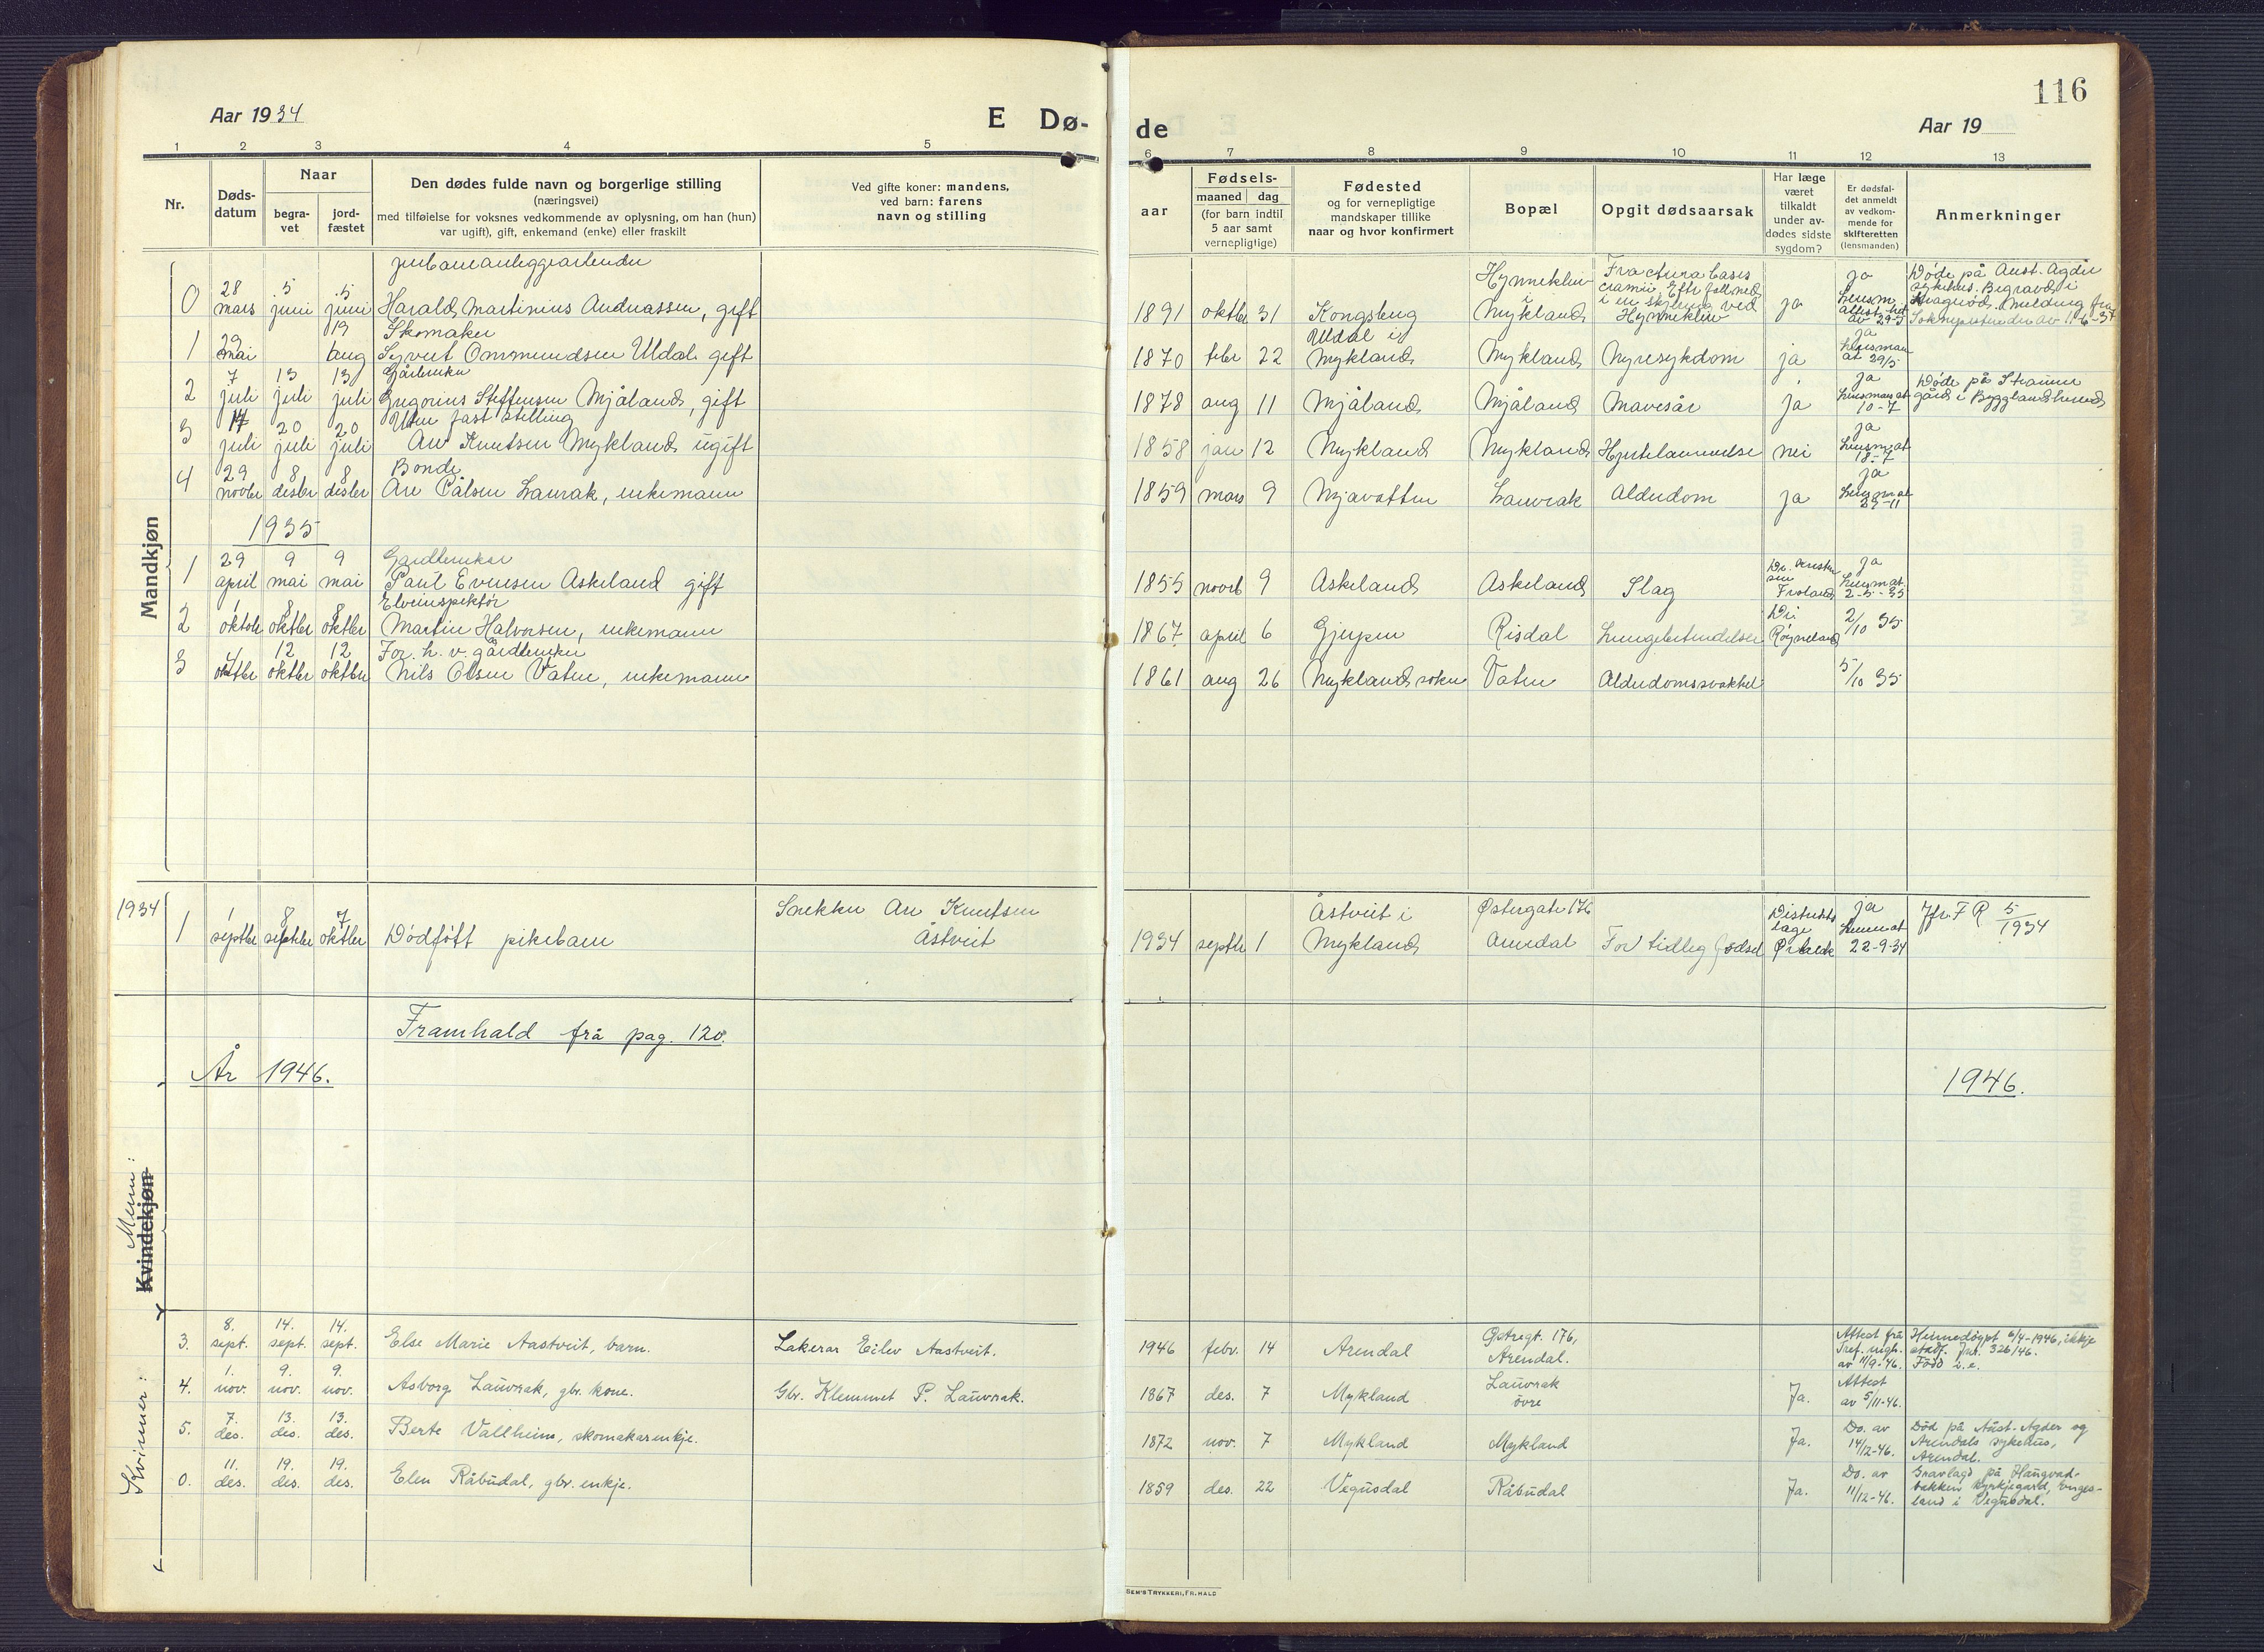 116
Aar 1934
E Dø-
de
Aar 19
1 2 3 4 5 6 7 8 9 10 11 12 13
Nr.
Døds-
datum
Naar
begra-
vet
jord-
fæstet
Den dødes fulde navn og borgerlige stilling
(næringsvei)
med tilføielse for voksnes vedkommende av oplysning, om han (hun)
var ugift), gift, enkemand (enke) eller fraskilt
Ved gifte koner: mandens,
ved barn: farens
navn og stilling
aar
Fødsels-
maaned dag
(for barn indtil
5 aar samt
vernepligtige)
Fødested
og for vernepligtige
mandskaper tillike
naar og hvor konfirmert
Bopæl
Opgit dødsaarsak
Har læge
været
tilkaldt
under av-
dødes sidste
sygdom?
Er dødsfal-
det anmeldt
av vedkom-
mende for
skifteretten
(lensmanden)
Anmerkninger
Mandkjøn
jernbaneanleggsarbeider
0 28 mars 5 juni 5 juni Harald Martinius Andreassen, gift 1891 oktbr 31 Kongsberg Hynneklev i Mykland Fractura basis cranii. Efter fall ned i en skjæring ved Hynneklev ja ja Lensm. attest av 29-5 Døde på Aust-Agder sykehus. Begravd i
Skomaker
1 29 mai 19 aug Syvert Ommundsen Uldal gift 1870 febr 22 Uldal i Mykland Mykland Nyresykdom ja ja Lensman at 29/5
Gårdbruker
2 7 juli 13 juli 13 juli Gregorius Steffensen Mjåland, gift 1878 aug 11 Mjåland Mjåland Mavesår ja ja Lensmans at 10-7 Døde på Straume gård i Bygglandsherred
Uten fast stilling
3 14 juli 20 juli 20 juli Are Knutsen Mykland ugift 1858 jan 12 Mykland Mykland Hjertelammelse nei ja Lensm. at 18-7
Bonde
4 29 novbr 8 desbr 8 desbr Are Pålsen Laurak, enkemann 1859 mars 9 Mjavatten Lauvrak Alderdom ja ja Lensm at 29-11
1935
Gardbruker
1 29 april 9 mai 9 mai Paul Evensen Askeland gift 1855 novb 9 Askeland Askeland Slag Froland ja Lensm at. 2-5-35
Elveinspektør
2 1 oktobr 8 oktbr 8 oktbr Martin Halvorsen, enkemann 1867 april 6 Gjerpen Risdal Lungebetendelse Røyneland 2/10 35
For. h. v. gårdbruker
3 4 oktbr 12 oktbr 12 oktbr Nils Olsen Vaten, enkemann 1861 aug 26 Myklandsoken Vaten Alderdomssvakhet 5/10 35
1934
1 1 septbr 8 septbr 7 oktbr Dødfött pikebarn Snekker Are Knutsen Åstveit 1934 septbr 1 Åstveit i Mykland Østergate 176 Arendal For tidleg fødsel Distrikts læge ja Lensm at 22-9-34 Jfr. F R 5/1934
Framhald frå pag. 120.
År 1946.
1946.
Menn:
Kvindekjøn
Kvinner:
3. 8. sept. 14. sept. 14. sept. Else Marie Aastveit, barn. Lakerar Eilev Aastveit. 1946 febr. 14 Arendal Østregt. 176, Arendal. Attest frå av 11/9-46. Heimedøypt 6/4-1946, ikkje stadf. Jnr. 326/46. Fødd u. e.
4. 1. nov. 9. nov. 9. nov. Asborg Lauvrak, gbr. kone. Gbr. Klemmet P. Lauvrak. 1867 des. 7 Mykland Lauvrak övre Ja. Attest av 5/11-46.
5. 7. des. 13. des. 13. des. Berte Vallheim, skomakarenkje. 1872 nov. 7 Mykland Mykland Ja. Do. av 14/12-46. Död på Aust-Agder og Arendals sykehus, Arendal.
0. 11. des. 19. des. 19. des. Elen Råbudal, gbr. enkje. 1859 des. 22 Vegusdal Råbudal Ja. Do. av 11/12-46. Gravlagd på Haugvad-bakken kyrkjegard, Enges-land i Vegusdal.
SEM'S TRYKKERI, FR.HALD